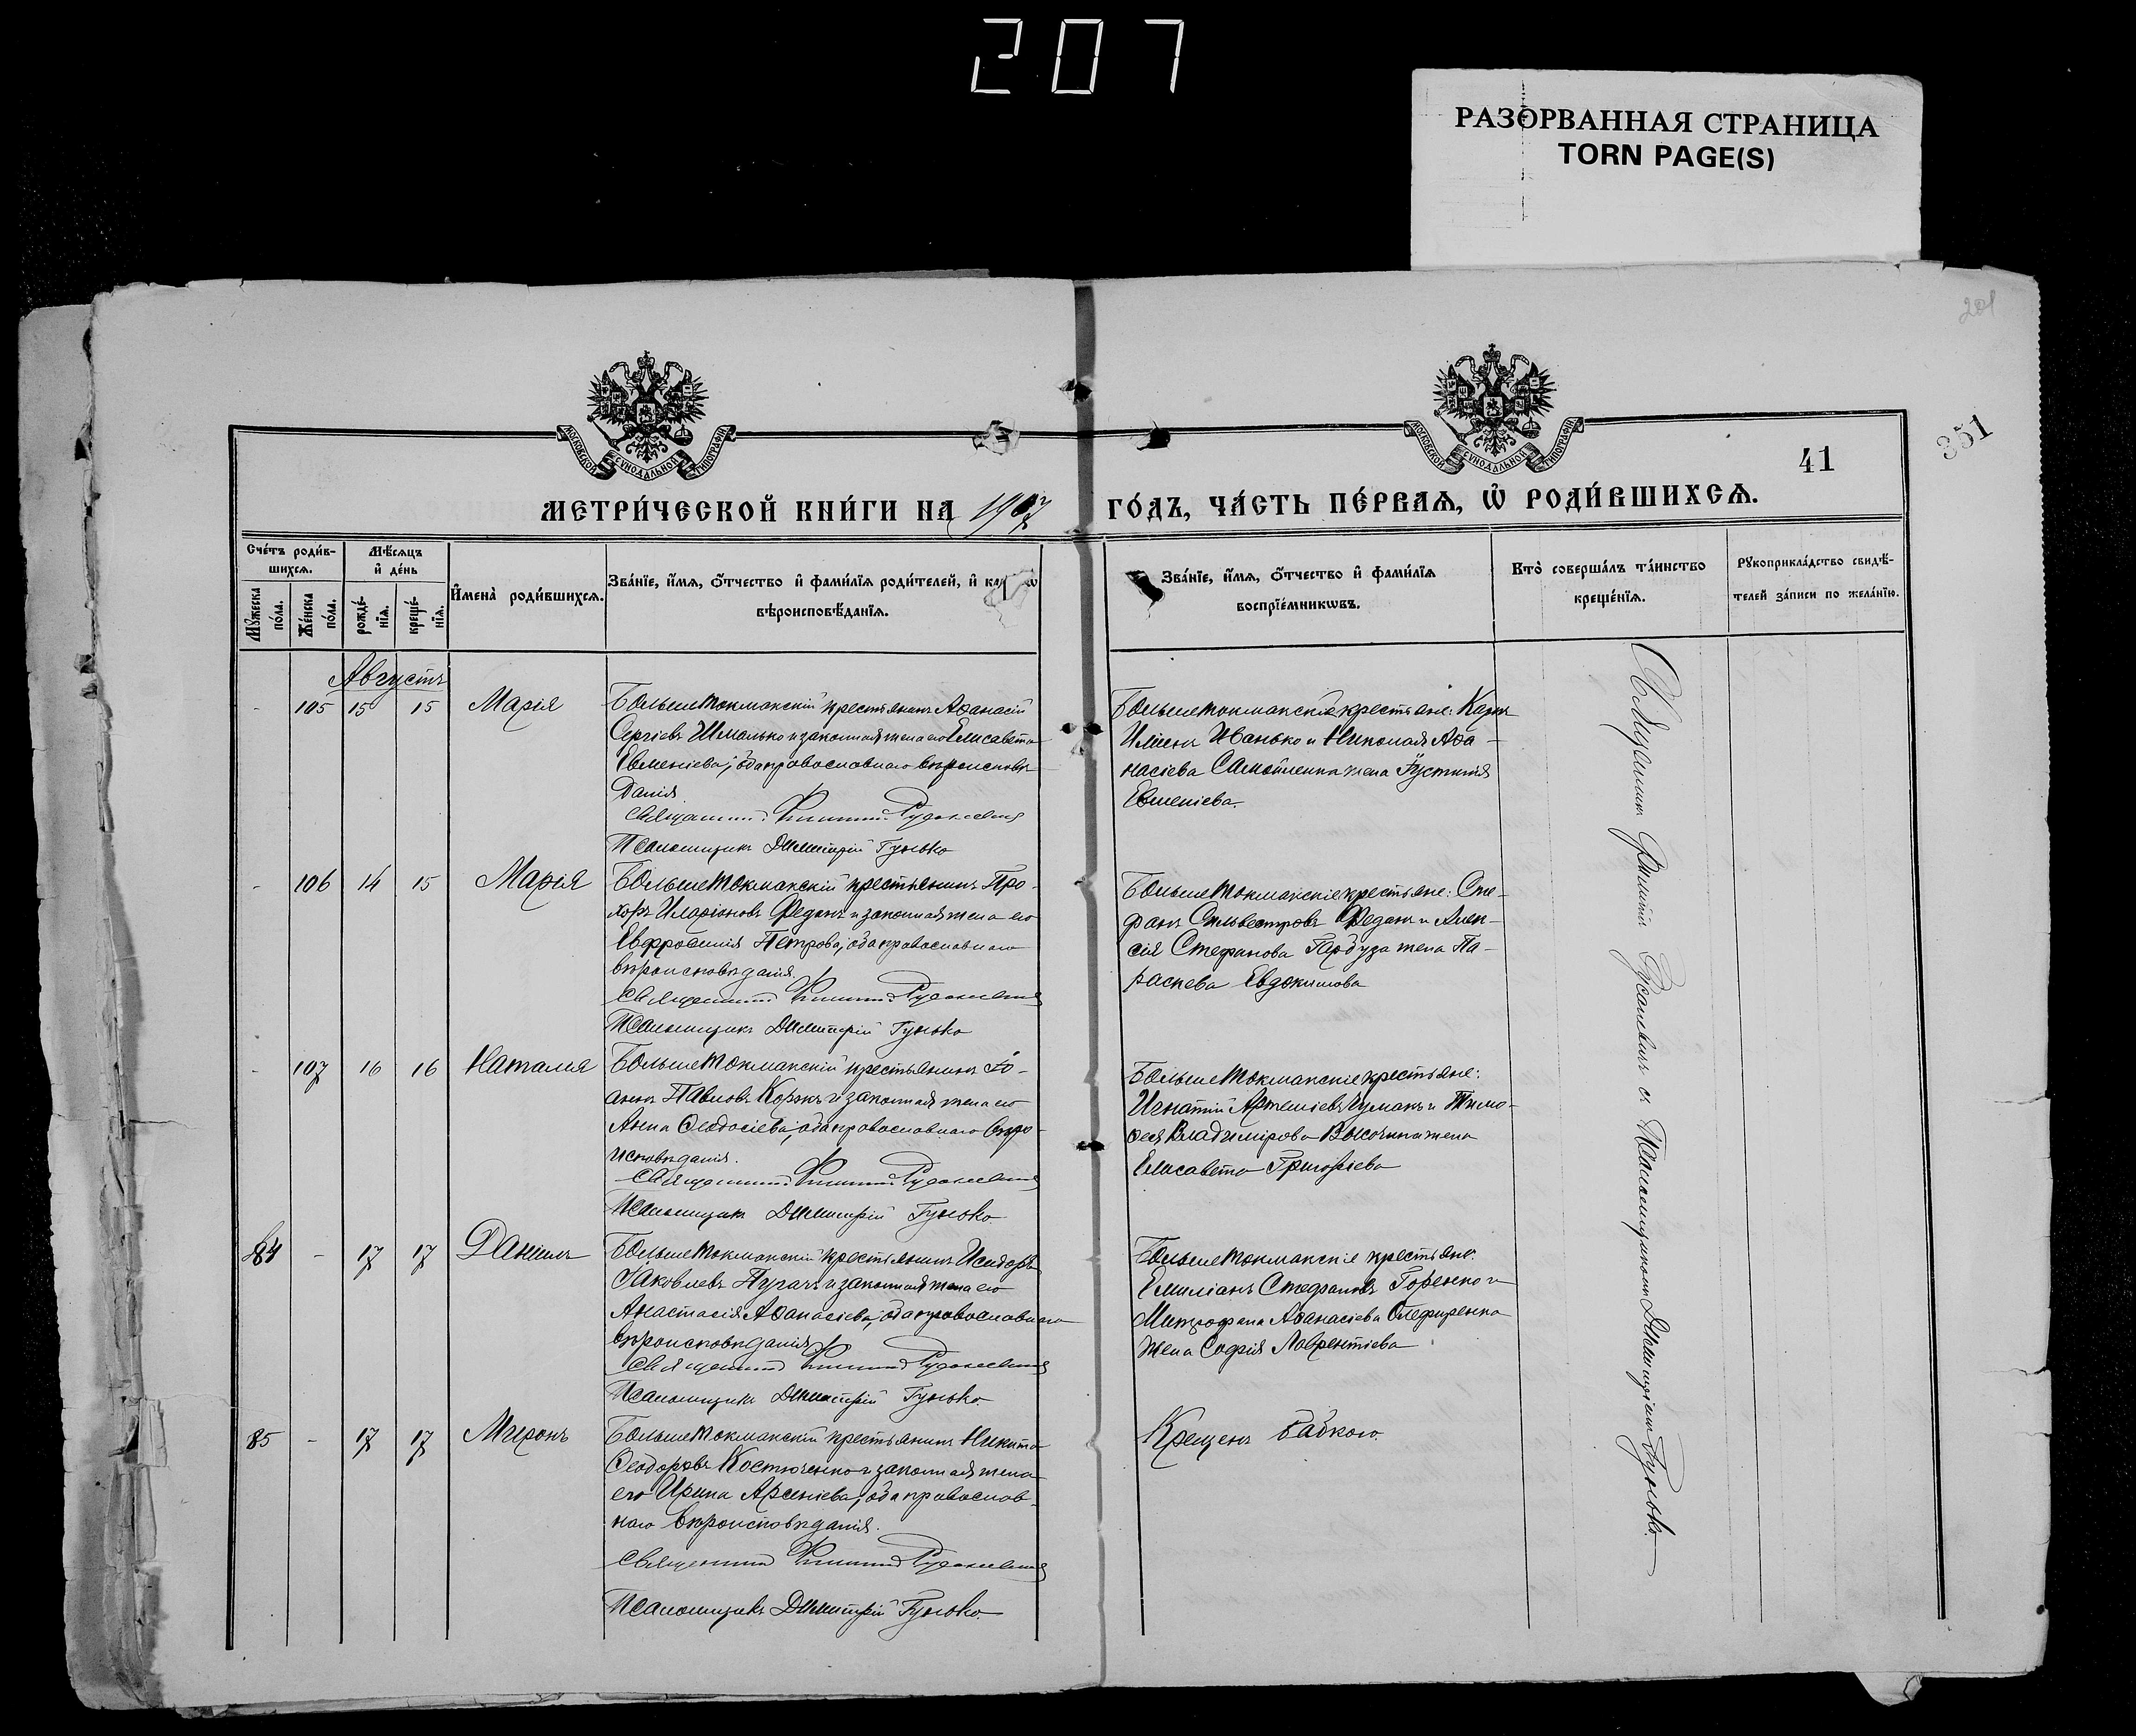 207
РАЗОРВАННАЯ СТРАНИЦА
TORN PAGE(S)
201
351
41
МОСКОВСКОЙ СѴНОДАЛЬНОЙ ТИПОГРАФІИ
МОСКОВСКОЙ СѴНОДАЛЬНОЙ ТИПОГРАФІИ
МЕТРИ́ЧЕСКОЙ КНИ́ГИ НА 1907 ГО́ДЪ, ЧА́СТЬ ПЕ́РВАѦ, Ѡ҆ РОДИ́ВШИХСѦ.
Сче́тъ роди́в-
шихсѧ.
Мꙋ́жеска по́ла.
Же́нска по́ла.
Мѣ́сѧцъ
и҆ де́нь
рожде́-
нїѧ.
креще́-
нїѧ.
И҆мена̀ роди́вшихсѧ.
Зва́нїе, и҆́мѧ, ѻ҆́тчество и҆ фами́лїѧ роди́телей, и҆
вѣроисповѣ́данїѧ.
Зва́нїе, и҆́мѧ, ѻ҆́тчество и҆ фами́лїѧ
воспрїе́мникѡвъ.
Кто̀ соверша́лъ та́инство
креще́нїѧ.
Рꙋкоприкла́дство свидѣ́-
телей за́писи по жела́нїю.
Августъ
- 105 15 15 Марія
Большетокмакскій крестьянинъ Аѳанасій
Сергіевъ Шмалько и законная жена его Елисавета
Евменіева; оба православнаго вѣроисповѣ-
данія.
Священникъ
Псаломщикъ Димитрій Гунько
Большетокмакскіе крестьяне: Карпъ
Иванько и Николая Аѳа-
насіева Самойленка жена Іустинія
Евменіева.
- 106 14 15 Марія
Большетокмакскій крестьянинъ Про-
хоръ Иларіоновъ Феданъ и законная жена его
Евфросинія Петрова; оба православнаго
вѣроисповѣданія.
Священникъ
Псаломщикъ Димитрій Гунько
Большетокмакскіе крестьяне: Сте-
фанъ Сильвестровъ Феданъ и Алек-
сія Стефанова Гарбуза жена Па-
раскева Евдокимова
- 107 16 16 Наталія
Большетокмакскій крестьянинъ Іо-
аннъ Павловъ Коржъ и законная жена его
Анна Ѳеодосіева; оба православнаго вѣро-
исповѣданія.
Священникъ
Псаломщикъ Димитрій Гунько
Большетокмакскіе крестьяне:
Игнатій Артеміевъ Чумакъ и Тимо-
ѳея Владимірова Высочина жена
Елисавета Григоріева
84 - 17 17 Даніилъ
Большетокмакскій крестьянинъ Исидоръ
Іаковлевъ Пугачъ и законная жена его
Анастасія Аѳанасіева; оба православнаго
вѣроисповѣданія
Священникъ
Псаломщикъ Димитрій Гунько
Большетокмакскіе крестьяне:
Емиліанъ Стефановъ Горенко и
Митрофана Аѳанасіева Олефиренка
жена Софія Лаврентіева
85 - 17 17 Миронъ
Большетокмакскій крестьянинъ Никита
Ѳеодоровъ Костюченко и законная жена
его Ирина Арсеніева; оба православ-
наго вѣроисповѣданія.
Священникъ
Псаломщикъ Димитрій Гунько
Крещенъ бабкою.
Священникъ съ Псаломщикомъ Димитріемъ Гунько